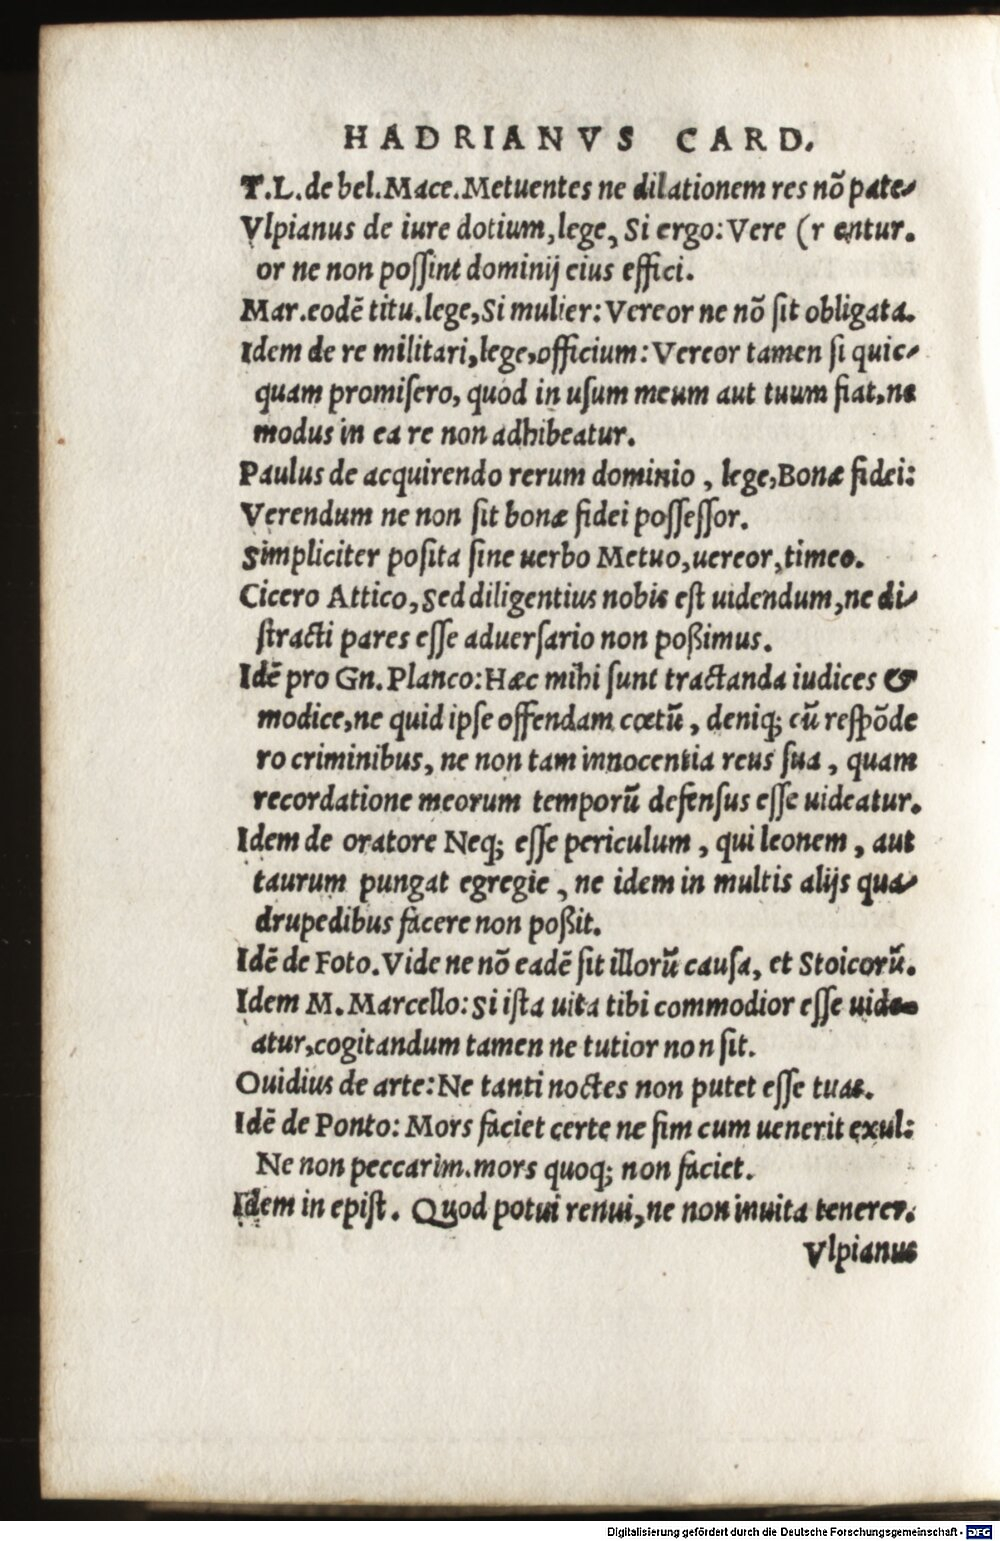 HADRIANVS CARD.
T.L.de bel.Mace.Metuentes ne dilationem res nõ pate-
Vlpianus de iure dotium,lege, Si ergo:Vere (r entur.
or ne non poſſint dominij eius effici.
Mar.eodẽ titu.lege,Si mulier:Vereor ne nõ ſit obligata.
Idem de re militari,lege,officium:Vereor tamen ſi quic-
quam promiſero, quod in uſum meum aut tuum fiat,ne
modus in ea re non adhibeatur.
Paulus de acquirendo rerum dominio , lege,Bonæ fidei:
Verendum ne non ſit bonæ fidei poſſeſſor.
Simpliciter poſita ſine uerbo Metuo,uereor,timeo.
Cicero Attico,Sed diligentius nobis eſt uidendum,ne di-
ſtracti pares eſſe aduerſario non poßimus.
Idẽ pro Gn.Planco:Hæc mihi ſunt tractanda iudices &
modice,ne quid ipſe offendam cœtũ , deniq; cũ reſpõde
ro criminibus, ne non tam innocentia reus ſua , quam
recordatione meorum temporũ defenſus eſſe uideatur.
Idem de oratore Neq; eſſe periculum , qui leonem , aut
taurum pungat egregie , ne idem in multis alijs qua-
drupedibus facere non poßit.
Idẽ de Foto.Vide ne nõ eadẽ ſit illorũ cauſa, et Stoicorũ.
Idem M. Marcello:Si iſta uita tibi commodior eſſe uide-
atur,cogitandum tamen ne tutior non ſit.
Ouidius de arte:Ne tanti noctes non putet eſſe tuas.
Idẽ de Ponto: Mors faciet certe ne ſim cum uenerit exul:
Ne non peccarim.mors quoq; non faciet.
Idem in epiſt. Quod potui renui,ne non inuita tenerer.
Vlpianus
Digitalisierung gefördert durch die Deutsche Forschungsgemeinschaft - DFG